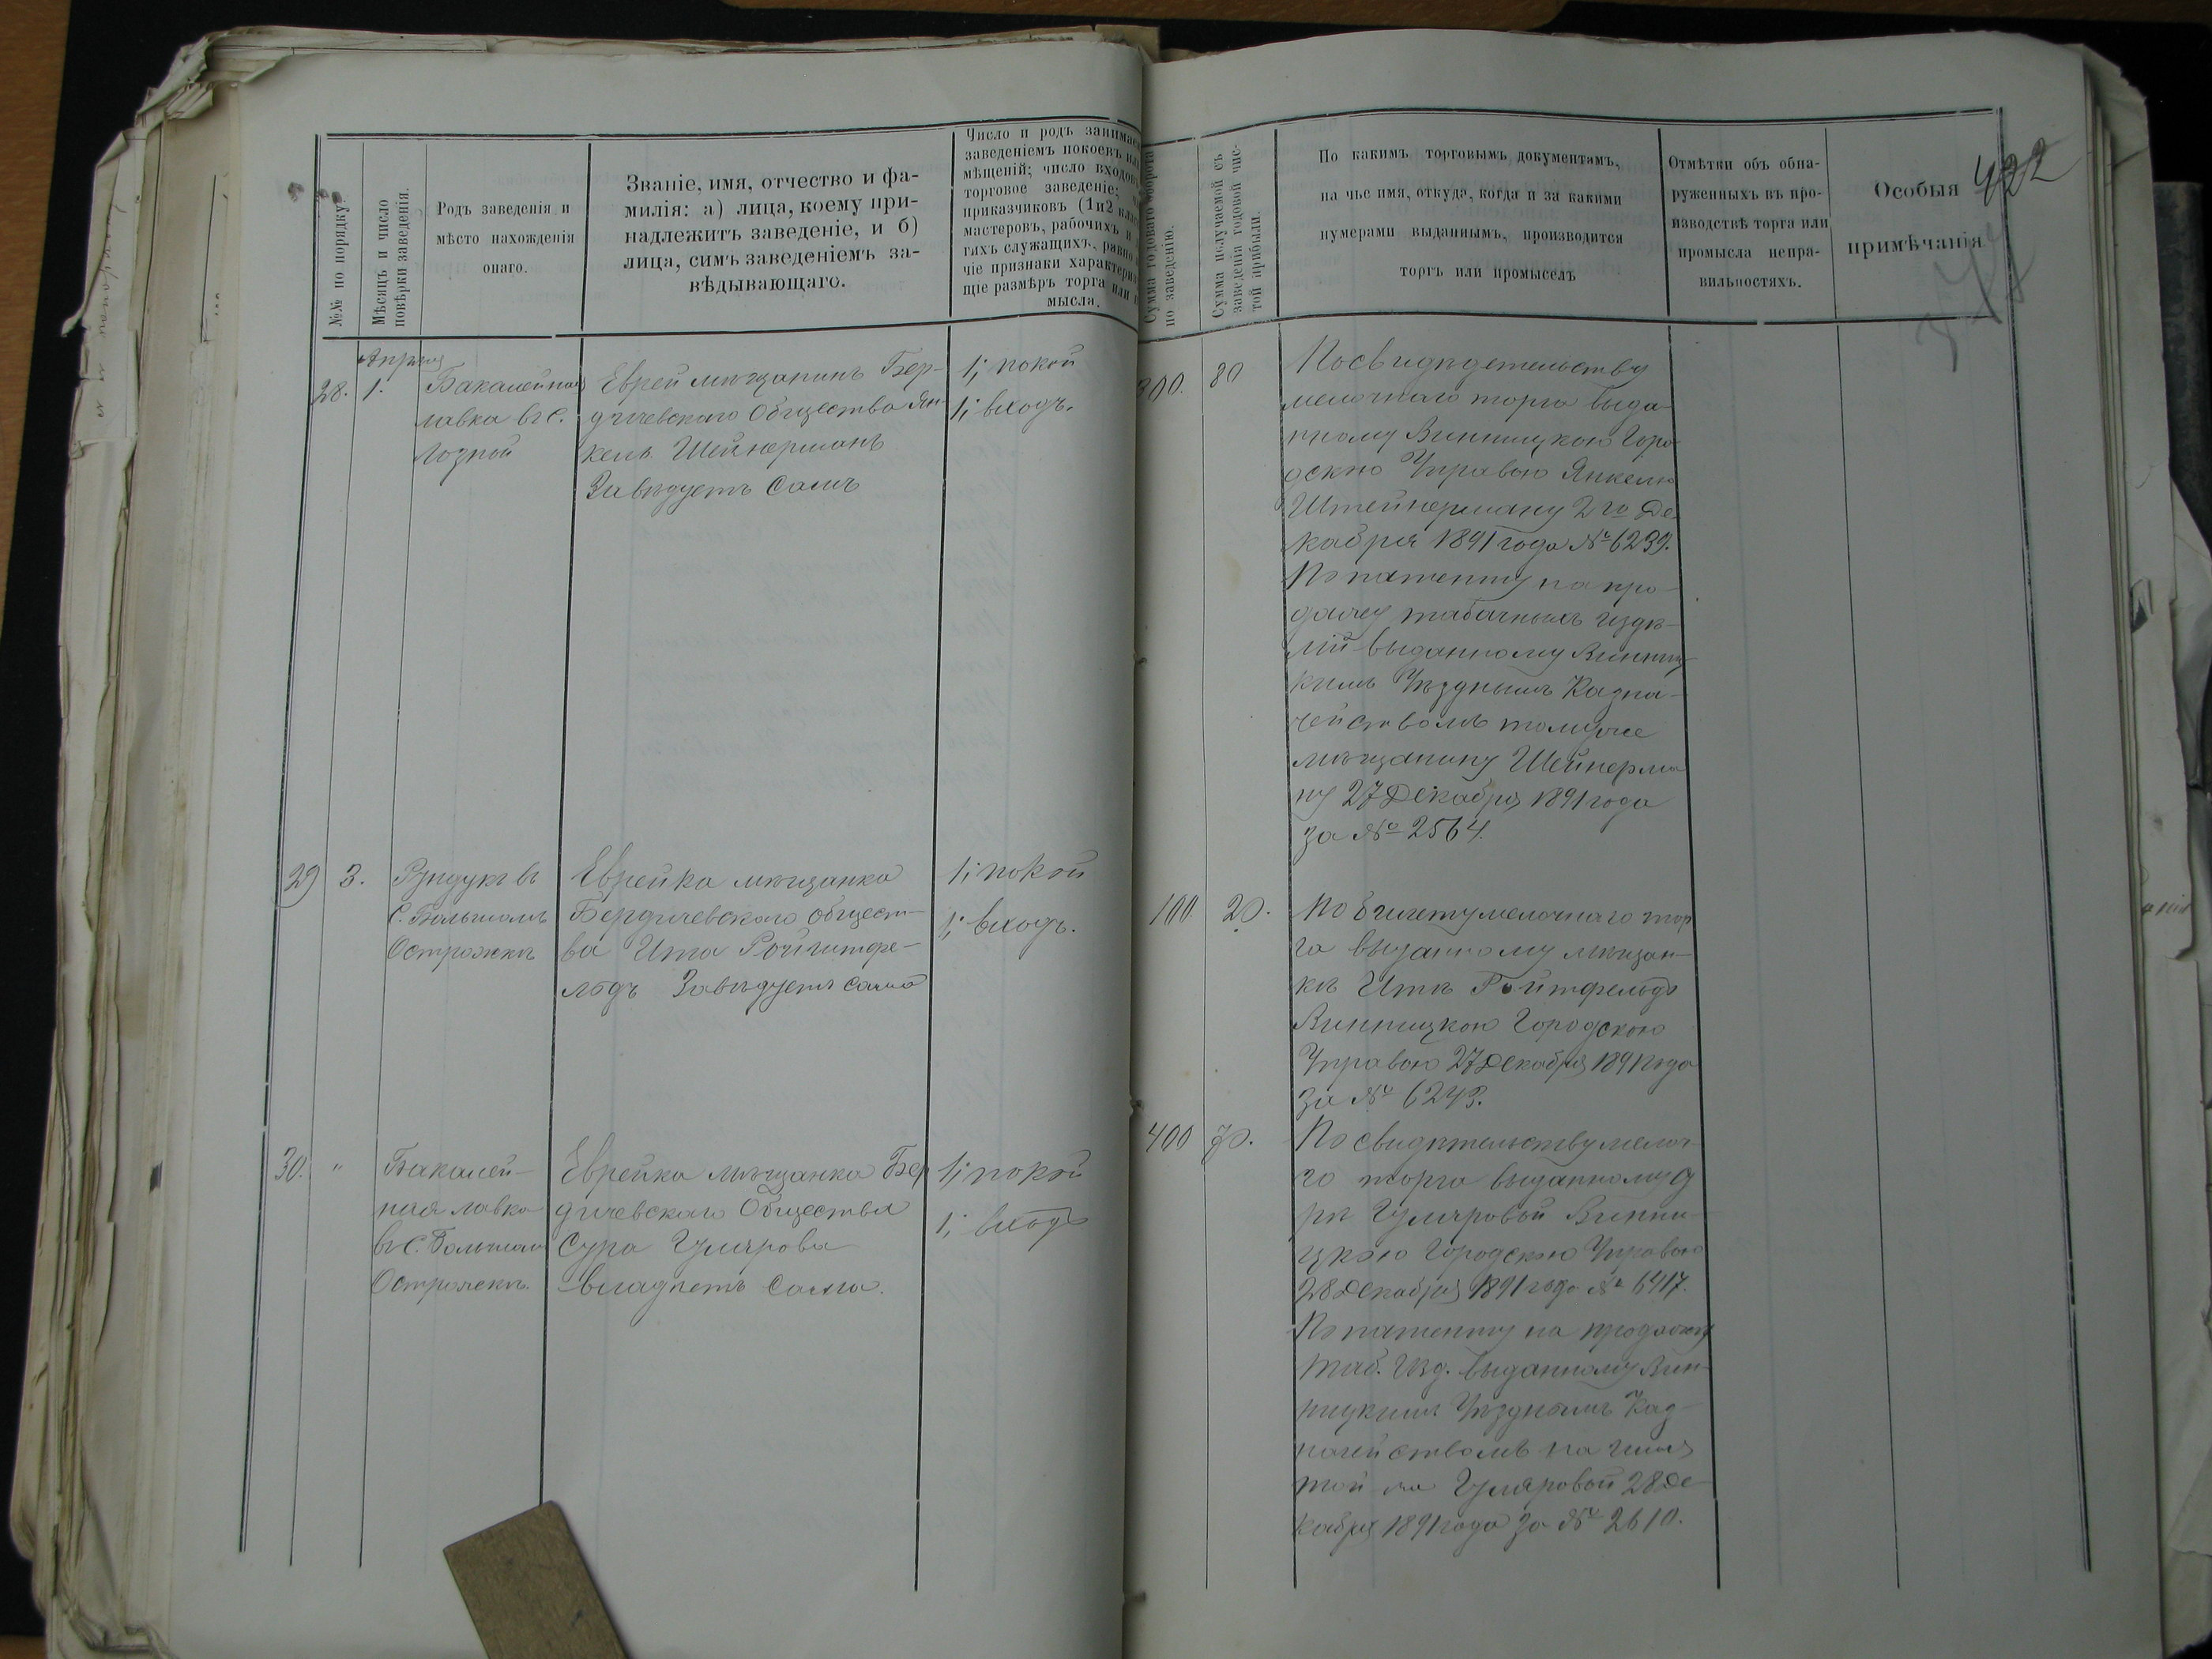 422
№№ по порядку.
Мѣсяцъ и число
повѣрки заведенія.
Родъ заведенія и
мѣсто нахожденія
онаго.
Званіе, имя, отчество и фа-
милія: а) лица, коему при-
надлежитъ заведеніе, и б)
лица, симъ заведеніемъ за-
вѣдывающаго.
Число и родъ занимае
заведеніемъ покоевъ или
мѣщеній; число входов
торговое заведеніе;
приказчиковъ (1 и 2 клас
мастеровъ, рабочихъ и
гихъ служащихъ, равно
чіе признаки характериз
щіе размѣръ торга или п
мысла.
Сумма годоваго оборота
по заведенію.
Сумма получаемой съ
заведенія годовой чис-
той прибыли.
По какимъ торговымъ документамъ,
на чье имя, откуда, когда и за какими
нумерами выданнымъ, производится
торгъ или промыселъ
Отмѣтки объ обна-
руженныхъ въ про-
изводствѣ торга или
промысла непра-
вильностяхъ.
Особыя
примѣчанія.
Апрѣля
28. 1.
Бакалейная
лавка въ с.
Лозной
Еврей мѣщанинъ Бер-
дичевскаго Общества Ян-
кель Шейнерманъ
Завѣдуетъ Самъ
1; покой
1; входъ.
300. 80
По свидѣтельству
мелочнаго торга выда-
нному Винницкою Горо-
дскою Управою Янкелю
Штейнерману 2го Де-
кабря 1891 года № 6239.
По патенту на про-
дажу табачныхъ издѣ-
лій выданному Винниц
кимъ Уѣзднымъ Казна-
чействомъ томуже
мѣщанину Шейнерма
ну 27 Декабря 1891 года
за № 2564.
29 3.
Рундукъ въ
с. Большомъ
Острожкѣ
Еврейка мѣщанка
Бердичевскаго общест-
ва Ита
льдъ Завѣдуетъ сама
1; покой
1; входъ.
100. 20.
По билету мелочнаго тор
га выданному мѣщан-
кѣ Итѣ Ройтфельдъ
Винницкою Городскою
Управою 27 Декабря 1891 года
за № 6243.
30. "
Бакалей-
ная лавка
въ с. Большомъ
Острожкѣ.
Еврейка мѣщанка Бер
дичевскаго Общества
Сура Гулярова
владѣетъ сама.
1; покой
1; входъ
400 70.
По свидѣтельству мелоч
го торга выданному С
рѣ Гуляровой Винни-
цкою Городскою Управою
28 Декабря 1891 года № 6417.
По патенту на продажу
таб. Изд. выданному Вин-
ницкимъ Уѣзднымъ Каз-
начействомъ на имя
той же Гуляровой 28 Де-
кабря 1891 года за № 2610.